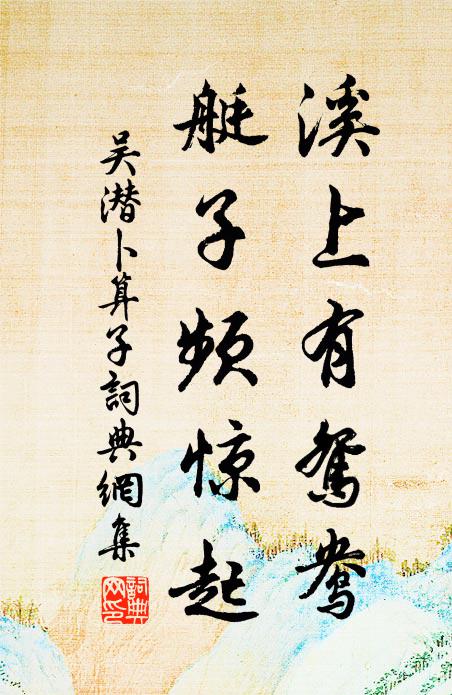 溪上有鴛鴦
艇子频惊起
吴潜卜算子詞典網集
詞典